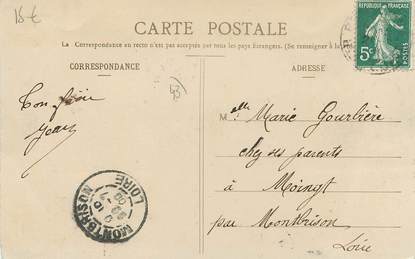 15 €
CARTE POSTALE
La Correspondance au recto n'est pas acceptée par tous les pays Étrangers. (Se renseigner à la
CORRESPONDANCE
ADRESSE
RÉPUBLIQUE FRANÇAISE
5c
POSTES
Ton frère
Jean
Melle Marie Gourbière
chez ses parents
à Moingt
par Montbrison
Loire
MONTBRISON
LOIRE